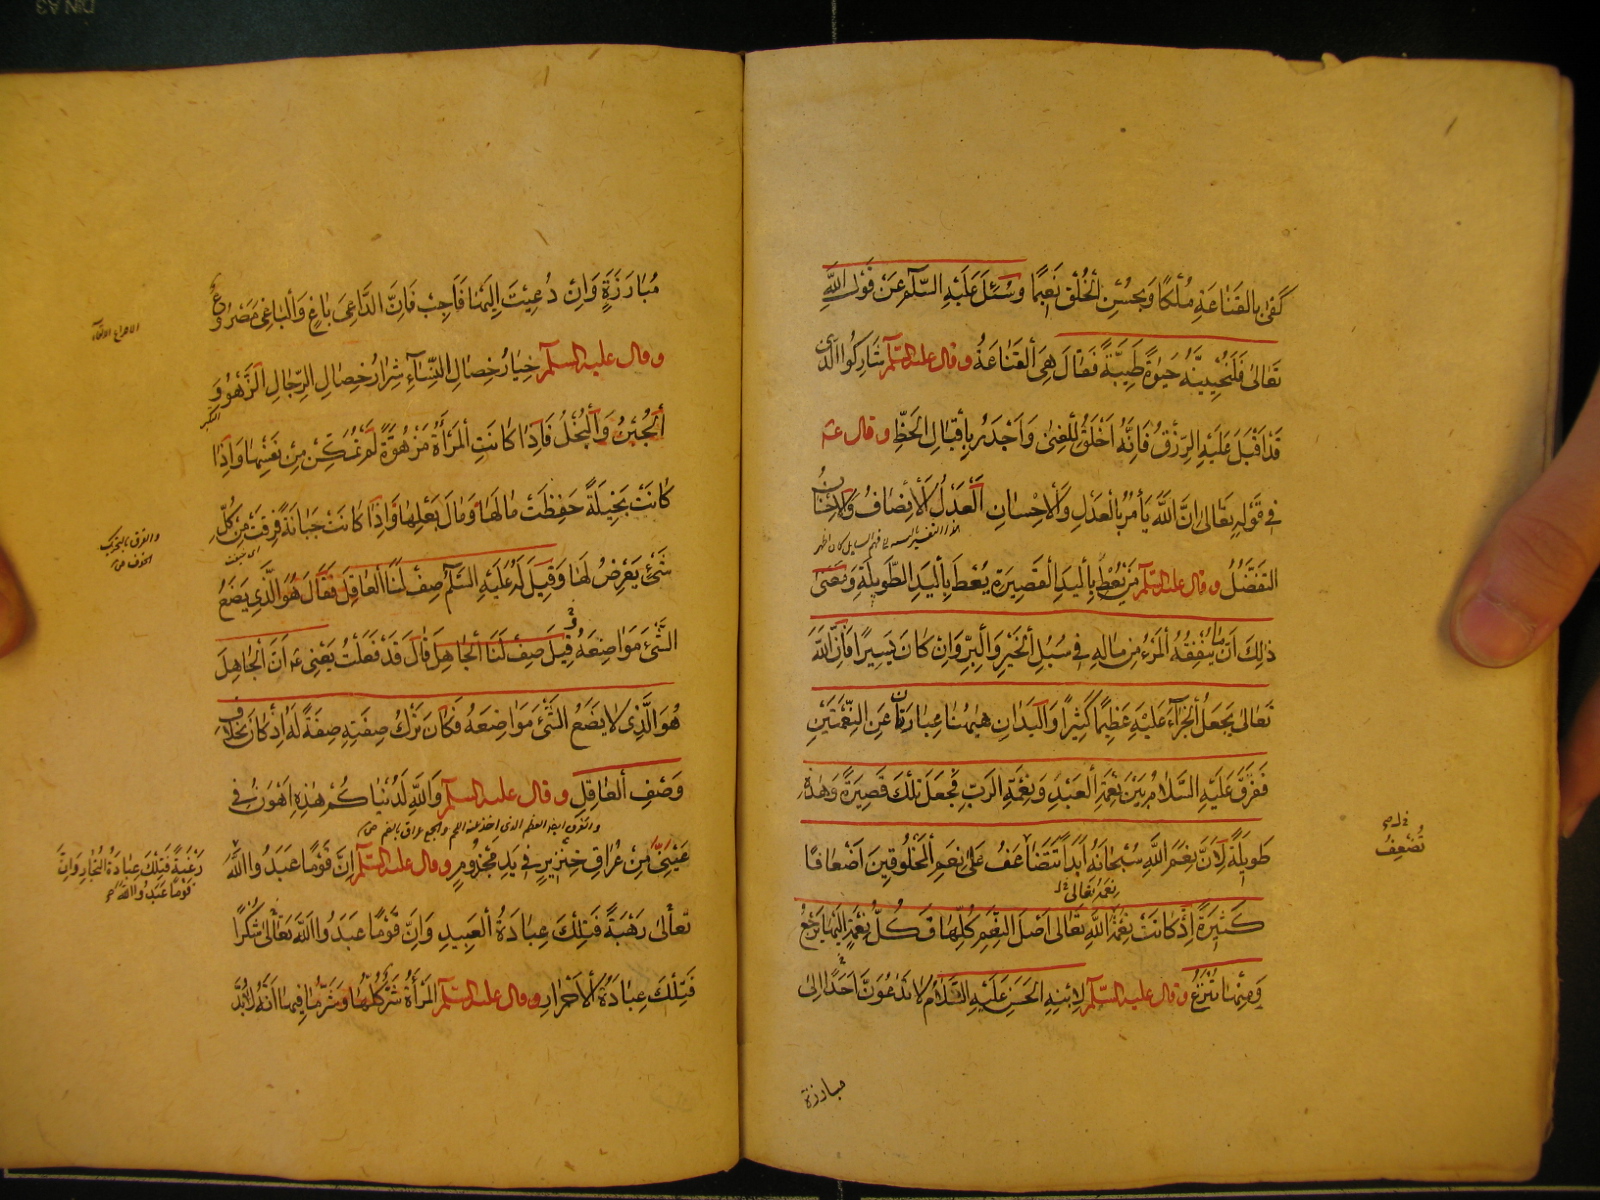 كَفىٰ بِالقَنَاعَةِ مُلْكًا وَبِحُسْنِ الْخُلْقِ نَعِيمًا وَسُئِلَ عَلَيْهِ السَّلَامُ عَنْ قَوْلِ اللهِ
تَعَالىٰ فَلَنُحْيِيَنَّهُ حَيٰوةً طَيِّبَةً فَقَالَ هِيَ الْقَنَاعَةُ وقال عليه السّلم شَارِكُوا الَّذِي
قَدْ اَقْبَلَ عَلَيْهِ الرِّزْقُ فَاِنَّهُ اَخْلَقُ لِلْغِنىٰ وَاَجْدَرُ بِاِقْبَالِ الْحَظِّ وقال ع
فِي قَوْلِهِ تَعَالىٰ اِنَّ اللهَ يَأْمُرُ بِالْعَدْلِ وَالْاِحْسَانِ اَلْعَدْلُ الْاِنْصَافُ وَالْاِحْسَانُ
التَّفَضُّلُ وقال عليه السّلم مَنْ يُعْطِ بِالْيَدِ الْقَصِيرَةِ يُعْطَ بِالْيَدِ الطَّوِيلَةِ وَمَعْنىٰ
ذٰلِكَ اَنَّ مَا يُنْفِقُهُ الْمَرْءُ مِنْ مَالِهِ فِي سُبُلِ الْخَيْرِ وَالْبِرِّ وَاِنْ كَانَ يَسِيرًا فَاِنَّ اللهَ
تَعَالىٰ يَجْعَلُ الْجَزَاءَ عَلَيْهِ عَظِيمًا كَثِيرًا وَالْيَدَانِ هٰهُنَا عِبَارَتَانِ عَنِ النِّعْمَتَيْنِ
فَفَرَّقَ عَلَيْهِ السَّلَامُ بَيْنَ نِعْمَةِ الْعَبْدِ وَنِعْمَةِ الرَّبِّ فَجَعَلَ تِلْكَ قَصِيرَةً وَهٰذِهِ
طَوِيلَةً لِاَنَّ نِعَمَ اللهِ سُبْحَانَهُ اَبَدًا تَتَضَاعَفُ عَلىٰ نِعَمِ الْمَخْلُوقِينَ اَضْعَافًا
تُضْعِفُ
نعم الله تعالى
كَثِيرَةً اِذْ كَانَتْ نِعْمَةُ اللهِ تَعَالىٰ اَصْلَ النِّعَمِ كُلِّهَا فَكُلُّ نِعْمَةٍ اِلَيْهَا يَرْجِعُ
وَمِنْهَا تُنْزَعُ وقال عليه السّلم لِابْنِهِ الْحَسَنِ عَلَيْهِ السَّلَامُ لَا تَدْعُوَنَّ اَحَدًا اِلىٰ
مبارزة
مُبَارَزَةٍ وَاِنْ دُعِيتَ اِلَيْهَا فَاَجِبْ فَاِنَّ الدَّاعِيَ بَاغٍ وَالْبَاغِي مَصْرُوعٌ
وقال عليه السلم خِيَارُ خِصَالِ النِّسَآءِ شِرَارُ خِصَالِ الرِّجَالِ الزَّهْوُ وَ
الكبر
الْجُبْنُ وَالْبُخْلُ فَاِذَا كَانَتِ الْمَرْأَةُ مَزْهُوَّةً لَمْ تُمَكِّنْ مِنْ نَفْسِهَا وَاِذَا
كَانَتْ بَخِيلَةً حَفِظَتْ مَالَهَا وَمَالَ بَعْلِهَا وَاِذَا كَانَتْ جَبَانَةً فَرِقَتْ مِنْ كُلِّ
شَيْءٍ يَعْرِضُ لَهَا وَقِيلَ لَهُ عَلَيْهِ السَّلَامُ صِفْ لَنَا الْعَاقِلَ فَقَالَ هُوَ الَّذِي يَضَعُ
الشَّيْءَ مَوَاضِعَهُ قِيلَ صِفْ لَنَا الْجَاهِلَ قَالَ قَدْ فَعَلْتُ يَعْنِي ع اَنَّ الْجَاهِلَ
هُوَ الَّذِي لَا يَضَعُ الشَّيْءَ مَوَاضِعَهُ فَكَانَ تَرْكُ صِفَتِهِ صِفَةً لَهُ اِذْ كَانَ بِخِلَافِ
وَصْفِ الْعَاقِلِ وقال عليه السلم وَاللهِ لَدُنْيَاكُمْ هٰذِهِ اَهْوَنُ فِي
عَيْنِي مِنْ عُرَاقِ خِنْزِيرٍ فِي يَدِ مَجْذُومٍ وقال عليه السّلم اِنَّ قَوْمًا عَبَدُوا اللهَ
رَغْبَةً فَتِلْكَ عِبَادَةُ التُّجَّارِ وَاِنَّ
قَوْمًا عَبَدُوا اللهَ
تَعَالىٰ رَهْبَةً فَتِلْكَ عِبَادَةُ الْعَبِيدِ وَاِنَّ قَوْمًا عَبَدُوا اللهَ تَعَالىٰ شُكْرًا
فَتِلْكَ عِبَادَةُ الْاَحْرَارِ وقال عليه السّلم الْمَرْأَةُ شَرٌّ كُلُّهَا وَشَرُّ مَا فِيهَا اَنَّهُ لَا بُدَّ